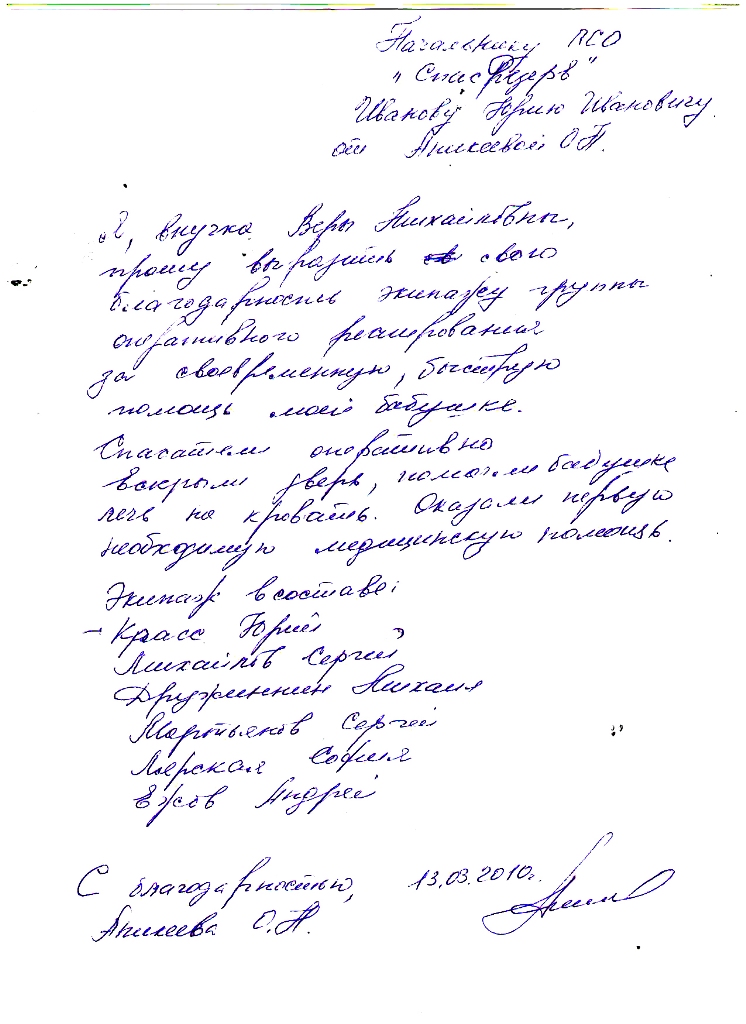 Начальнику ПСО
"СпасРезерв"
Иванову Юрию Ивановичу
от Аникеевой О.П.
Я, внучка Веры Михайловны,
прошу выразить свою
благодарность экипажу группы
оперативного реагирования
за своевременную, быструю
помощь моей бабушке.
Спасатели оперативно
вскрыли дверь, помогли бабушке
лечь на кровать. Оказали первую
необходимую медицинскую помощь.
Экипаж в составе:
- Красс Юрий
Михайлов Сергей
Дружинин Михаил
Мартьянов Сергей
София
Ежов Андрей
С благодарностью, 13.03.2010г.
Аникеева О.П.